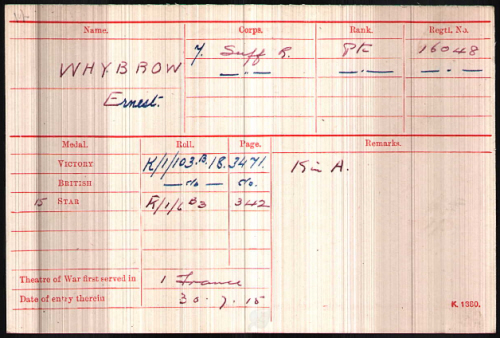 Name. Corps. Rank. Regtl. No.
WHYBROW 7. Suff R. Pte 16048
Ernest. —.— —.— —.—
Medal. Roll. Page. Remarks.
VICTORY K/1/103.B.18. 3471. K in A.
BRITISH —do— do.
15 STAR K/1/6 B3 342
Theatre of War first served in 1 France
Date of entry therein 30.7.15
K. 1380.